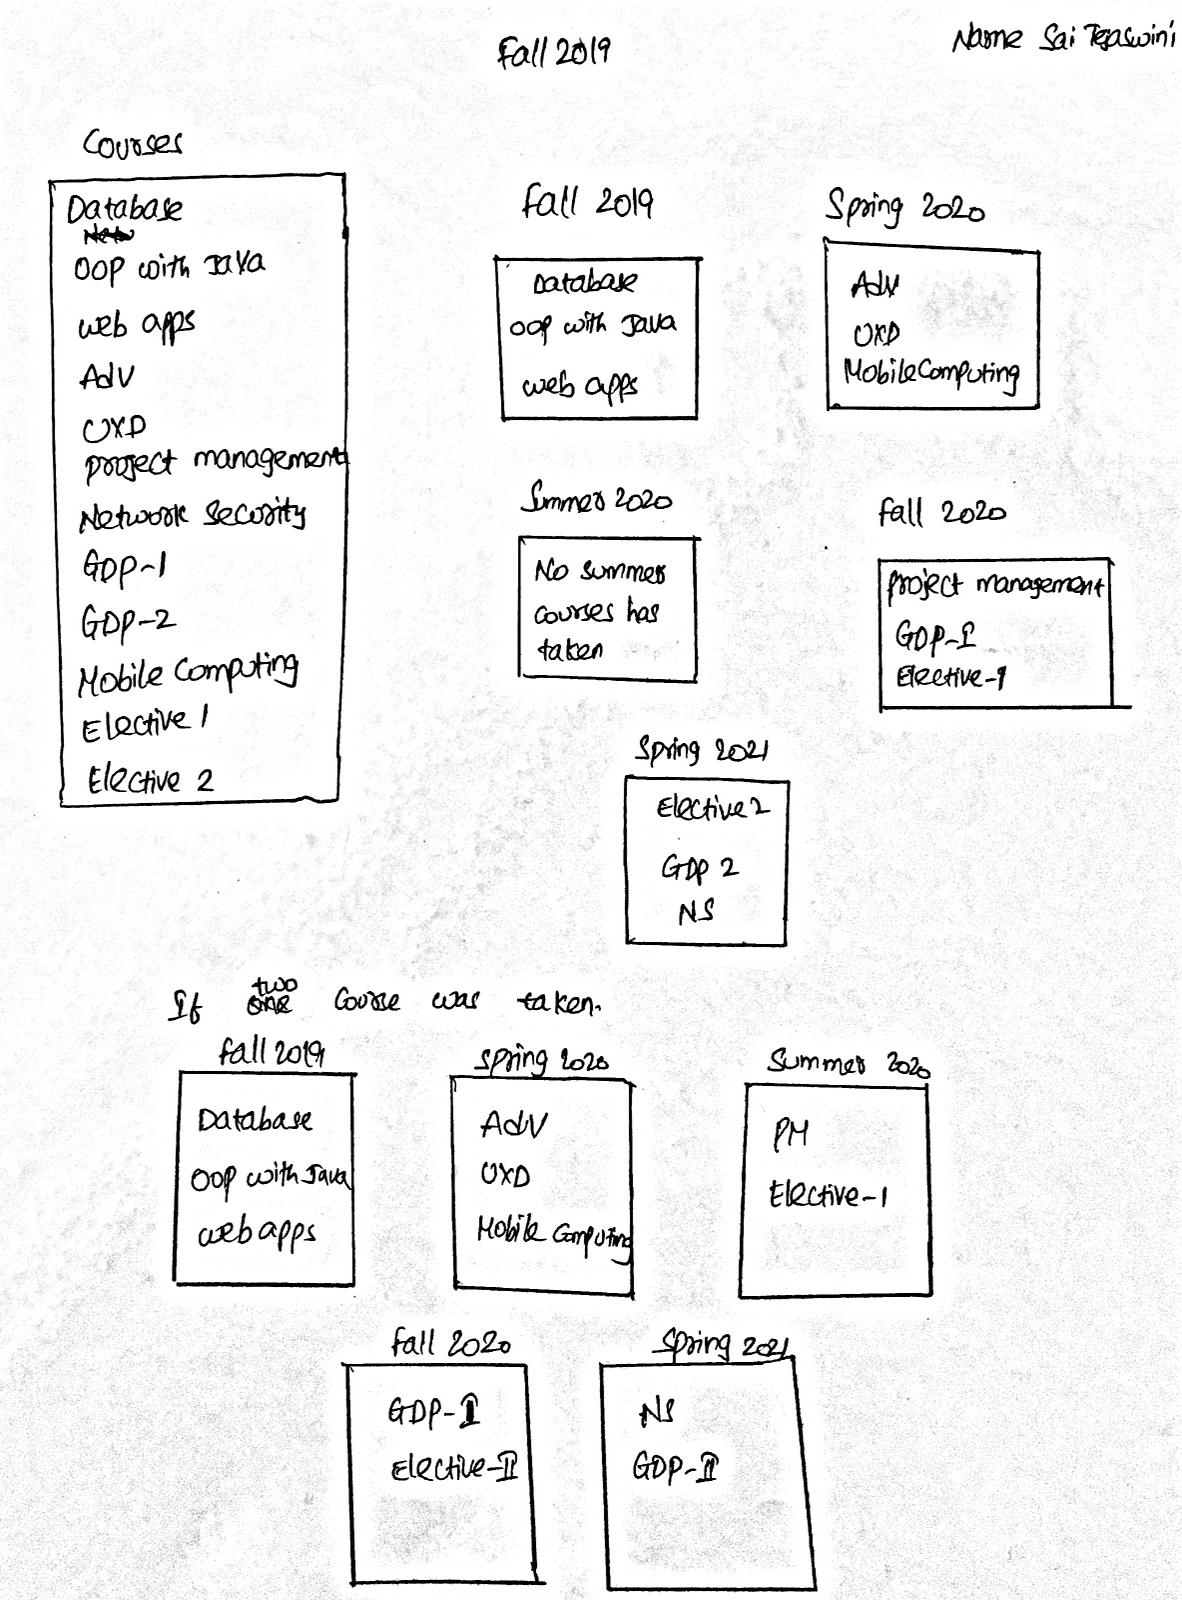 Fall 2019
Name Sai Tejaswini
Courses
Database
OOP with Java
web apps
Adv
UXD
project management
Network Security
GDP-1
GDP-2
Mobile Computing
Elective 1
Elective 2
Fall 2019
Database
OOP with Java
web apps
Spring 2020
Adv
UXD
Mobile Computing
Summer 2020
No summer
courses has
taken
Fall 2020
project management
GDP-I
Elective-1
Spring 2021
Elective 2
GDP 2
NS
If two course was taken.
Fall 2019
Database
OOP with Java
web apps
Spring 2020
Adv
UXD
Mobile Computing
Summer 2020
PM
Elective-1
Fall 2020
GDP-I
Elective-II
Spring 2021
NS
GDP-II